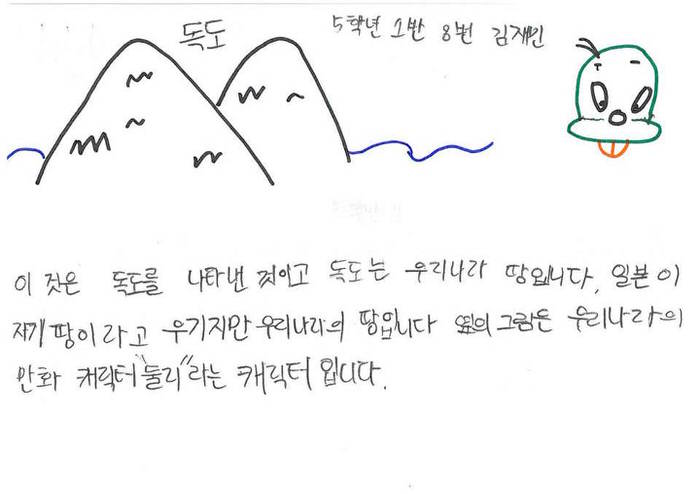 독도
5학년 1반 8번 김재민
이 것은 독도를 나타낸 것이고 독도는 우리나라 땅입니다. 일본이
자기 땅이라고 우기지만 우리나라의 땅입니다 옆의 그림은 우리나라의
만화 캐릭터 "둘리"라는 캐릭터 입니다.